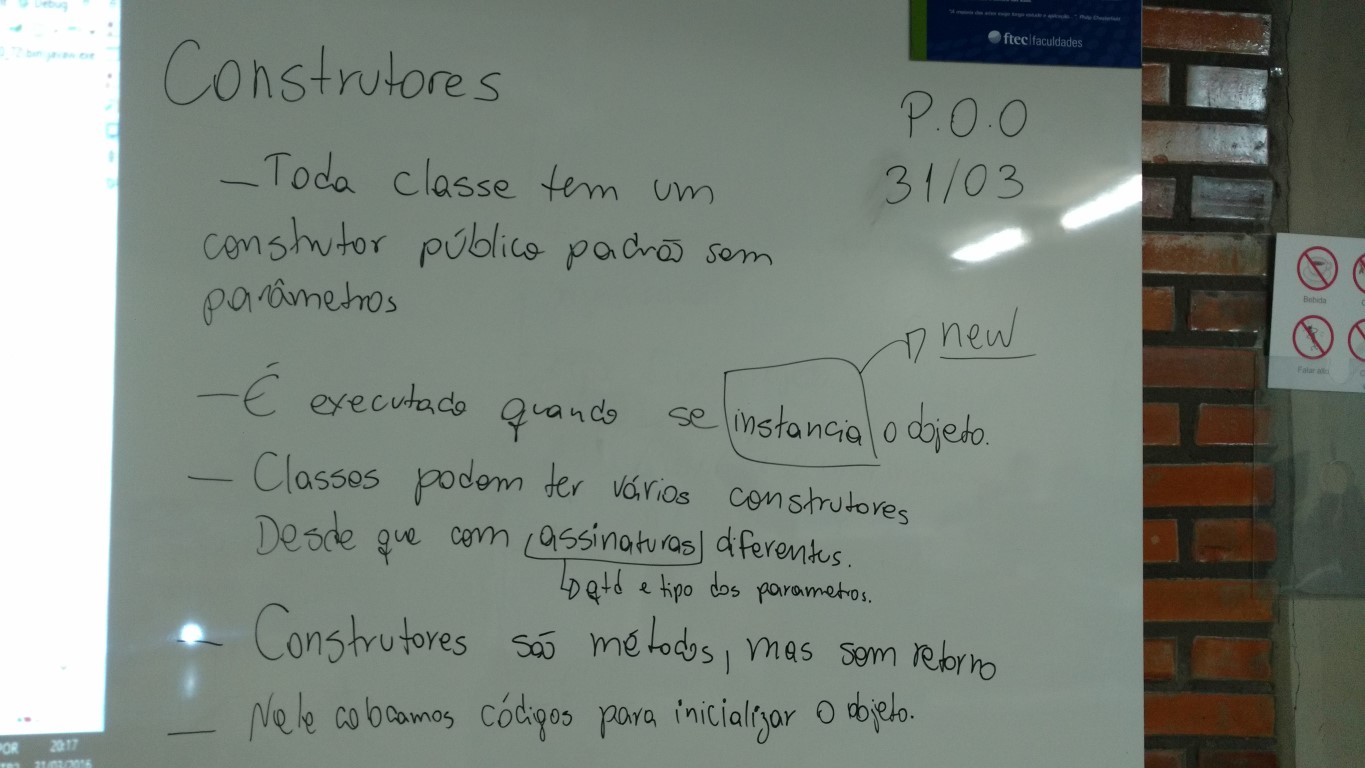 ftec faculdades
Construtores
P.O.O
31/03
– Toda classe tem um
construtor público padrão sem
parâmetros
new
– É executado quando se instancia o objeto.
– Classes podem ter vários construtores
Desde que com assinaturas diferentes.
qtd e tipo dos parametros.
– Construtores são métodos, mas sem retorno
– Nele colocamos códigos para inicializar o objeto.
Bebida
Falar alto
POR 20:17